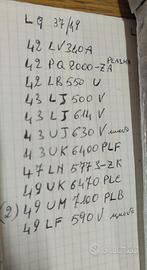 LG 37/49
42 LV 340A
42 PQ 2000-ZA PLASMA
42 LB 550 U
43 LJ 500 V
43 LJ 614 V
43 UJ 630 V nuovo
43 UK 6400 PLF
47 LN 577S-ZK
49 UK 6470 PLC
(2) 49 UM 7100 PLB
49 LF 590 V nuovo